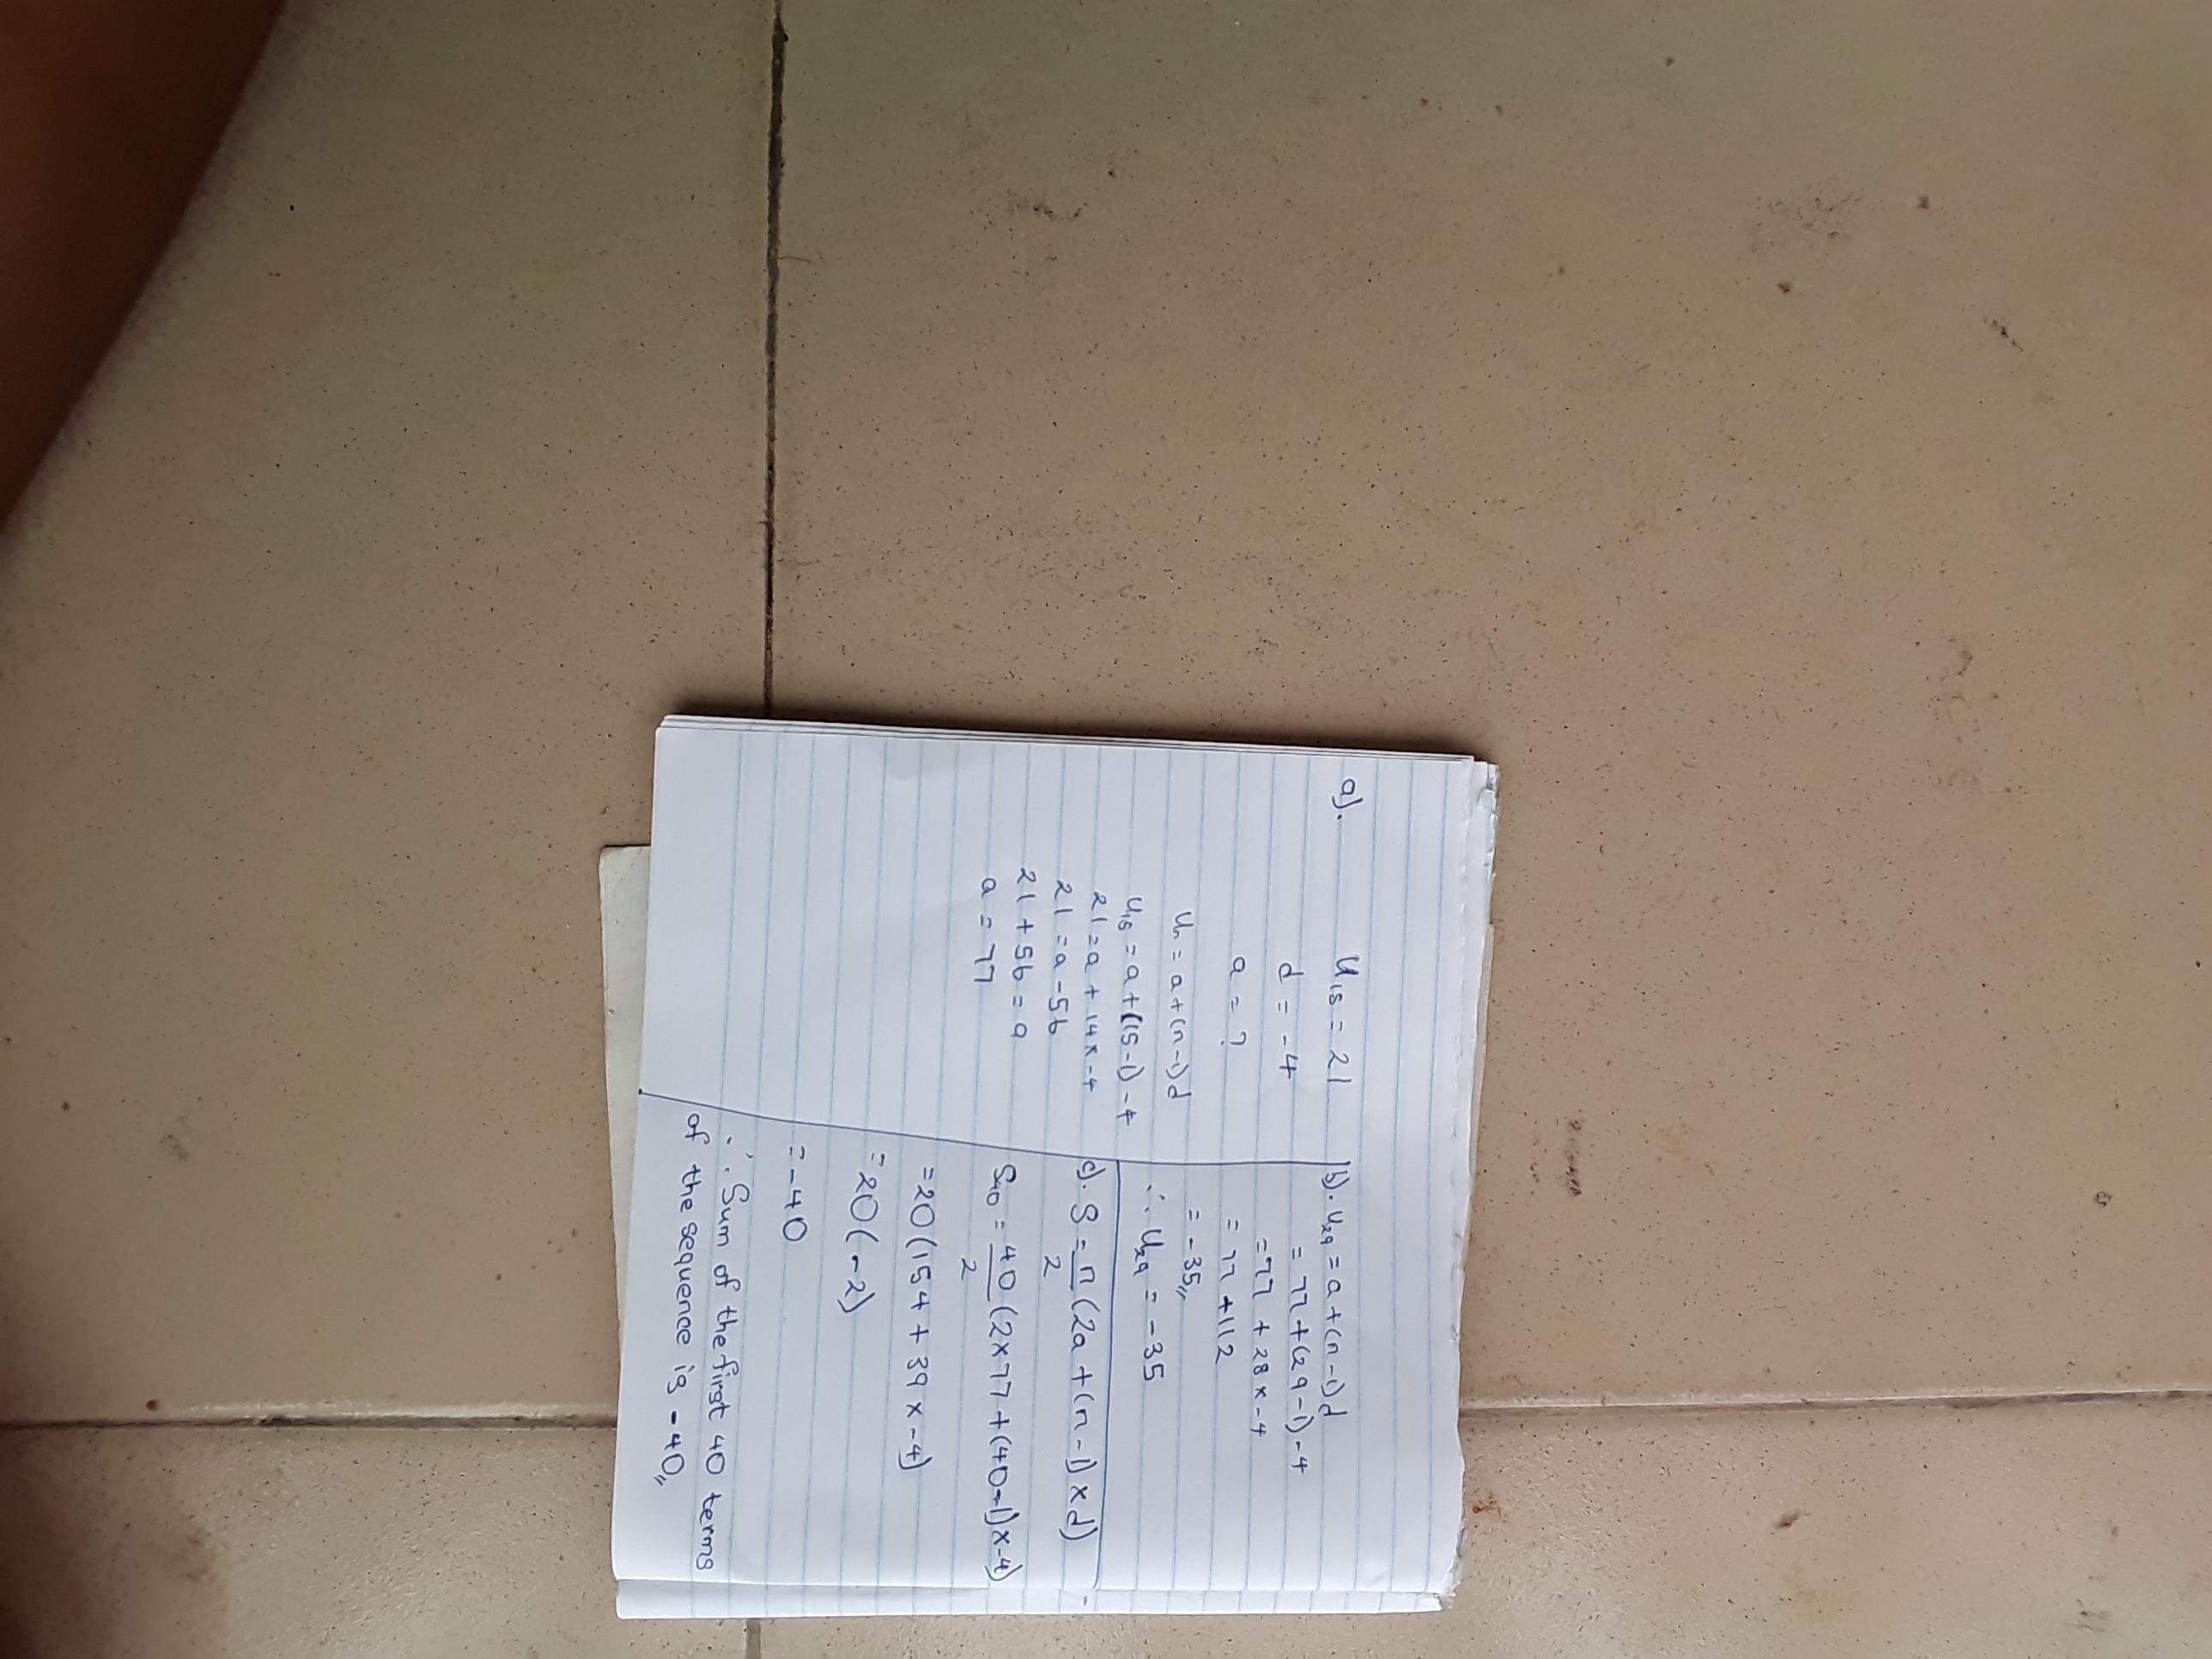 a). U15 = 21
d = -4
a = ?
Un = a+(n-1)d
U15 = a+(15-1)-4
21 = a + 14x-4
21 = a -56
21 + 56 = a
a = 77
b). U29 = a+(n-1)d
= 77+(29-1)-4
= 77 + 28x-4
= 77 +112
= -35,,
∴ U29 = -35
c). S = n/2 (2a + (n-1)xd)
S40 = 40/2 (2x77+(40-1)x-4)
= 20(154 + 39 x -4)
= 20(-2)
= -40
∴ Sum of the first 40 terms
of the sequence is -40,,